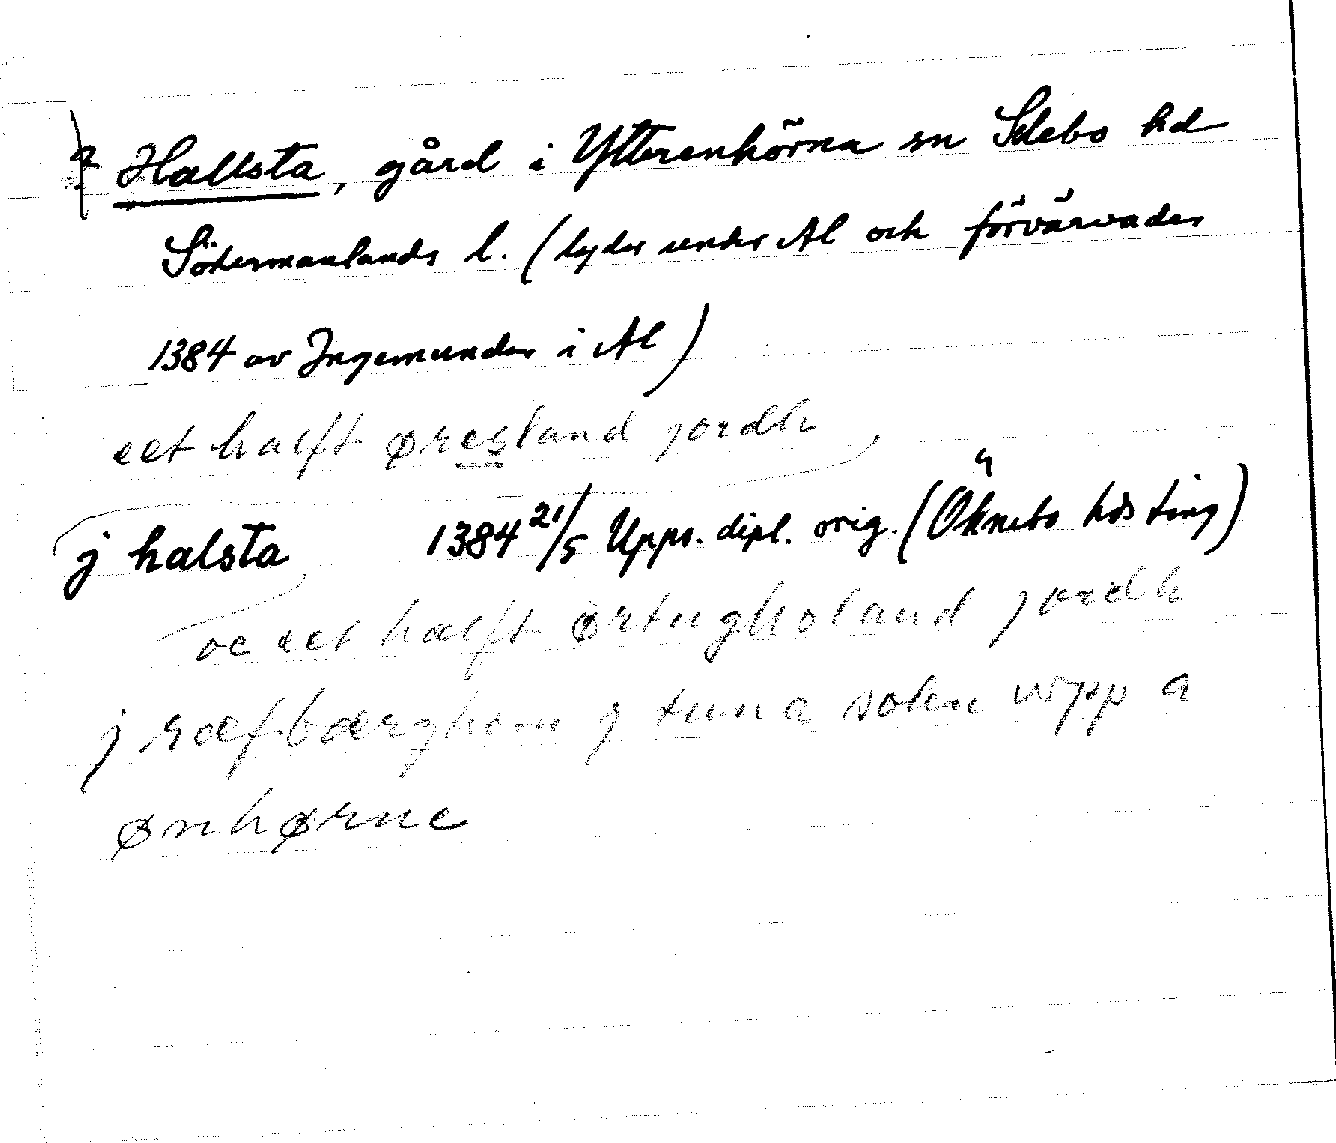 ? Hallsta, gård i Ytterenhörna sn Selebo hd
Södermanlands l. (lyder under Al och förvärvades
1384 av Ingemunder i Al)
eet halft øresland jordh
j halsta 1384 21/5 Upps. dipl. orig. (Öknebo hds ting)
oc eet hælft ørtugholand jordh
j ræfbærghom j tuna sokn wpp a
ønhørne